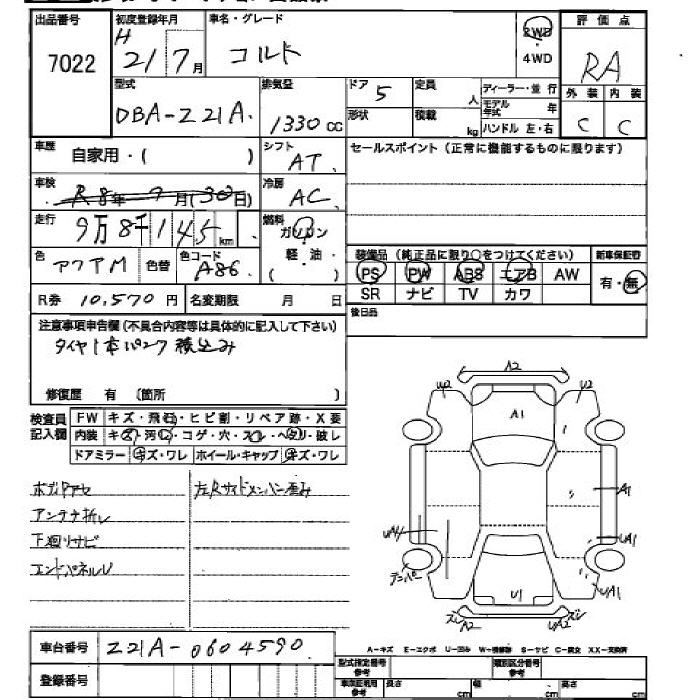 出品番号 初度登録年月 車名・グレード 評価点
7022 H 21年7月 コルト 2WD・4WD RA
型式 排気量 ドア 5 定員 人 ディーラー・並行 外装 内装
DBA-Z21A 1330cc 形状 積載 kg モデル年式 年 C C
ハンドル 左・右
車歴 自家用・( ) シフト AT セールスポイント(正常に機能するものに限ります)
車検 R8年9月(30日) 冷房 AC
走行 9万8千145km 燃料 ガソリン
色 アクアM 色替 色コード A86 軽油・ ( ) 装備品(純正品に限り○をつけてください) 新車保証書
PS PW ABS エアB AW 有・無
R券 10,570円 名変期限 月 日 SR ナビ TV カワ
後日品
注意事項申告欄(不具合内容等は具体的に記入して下さい)
タイヤ1本パンク積込み
修復歴 有 (箇所 )
検査員記入欄 FW キズ・飛石・ヒビ割・リペア跡・X要
内装 キズ・汚れ・コゲ・穴・スレ・ヘタリ・破レ
ドアミラー キズ・ワレ ホイール・キャップ キズ・ワレ
ボディアセ 左Rサイドメンバー歪み
アンテナ折レ
下廻りサビ
エンドパネルU
A2
UA2 U2
A1
A1
UA1
U1 UA1
ズレ A2 UA2 ズレ
車台番号 Z21A-0604590
A-キズ E-エクボ U-凹み W-補修跡 S-サビ C-腐食 XX-交換済
登録番号 型式指定番号 参考 類別区分番号 参考
車庫証明用 参考 長さ cm 幅 cm 高さ cm